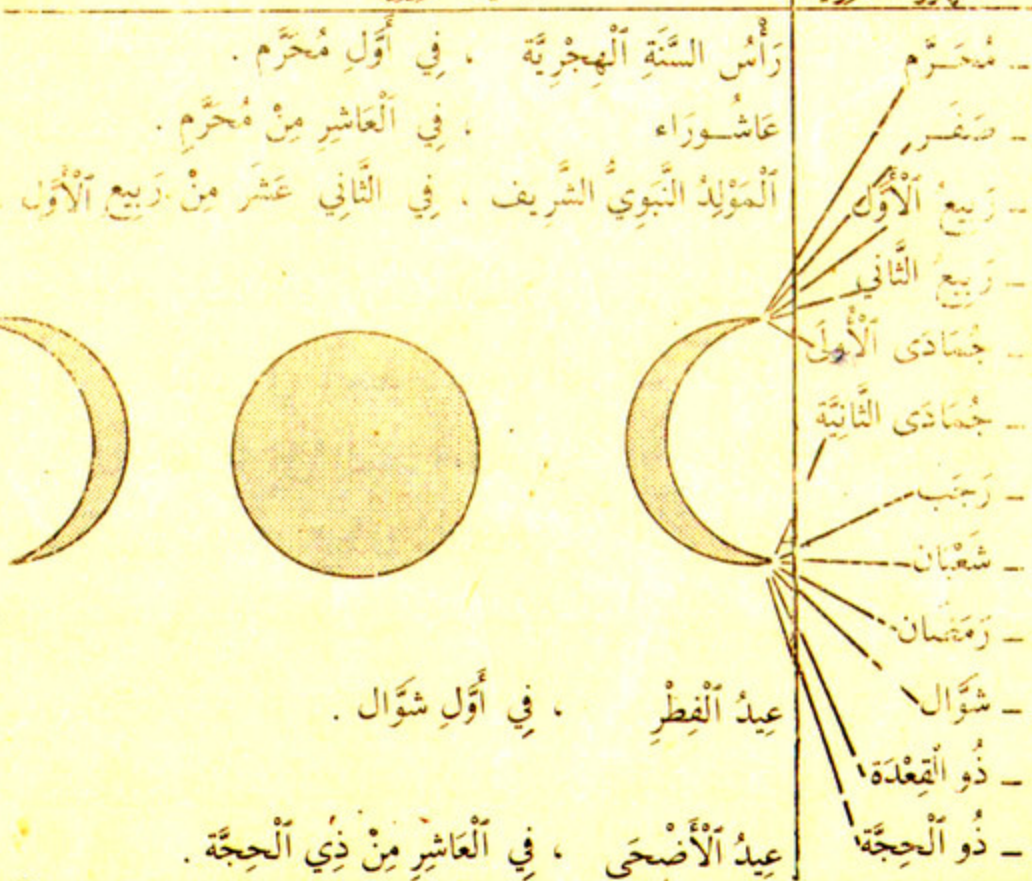 - مُحَـرَّم
- صَفَـر
- رَبِيعُ ٱلْأَوَّل
- رَبِيعُ الثَّانِي
- جُمَادَى ٱلْأُولَى
- جُمَادَى الثَّانِيَّة
- رَجَب
- شَعْبَان
- رَمَضَان
- شَوَّال
- ذُو ٱلْقِعْدَة
- ذُو ٱلْحِجَّة
رَأْسُ السَّنَةِ ٱلْهِجْرِيَّة ، فِي أَوَّلِ مُحَرَّم .
عَاشُـورَاء ، فِي ٱلْعَاشِرِ مِنْ مُحَرَّمٍ .
ٱلْمَوْلِدُ النَّبَوِيُّ الشَّرِيف ، فِي الثَّانِي عَشَرَ مِنْ رَبِيعِ ٱلْأَوَّل .
عِيدُ ٱلْفِطْرِ ، فِي أَوَّلِ شَوَّال .
عِيدُ ٱلْأَضْحَى ، فِي ٱلْعَاشِرِ مِنْ ذِي ٱلْحِجَّة .